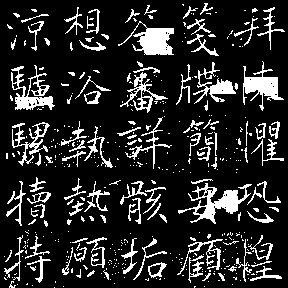 拜悚懼恐惶
箋牒簡要顧
答審詳骸垢
想浴執熱願
涼驢騾犢特